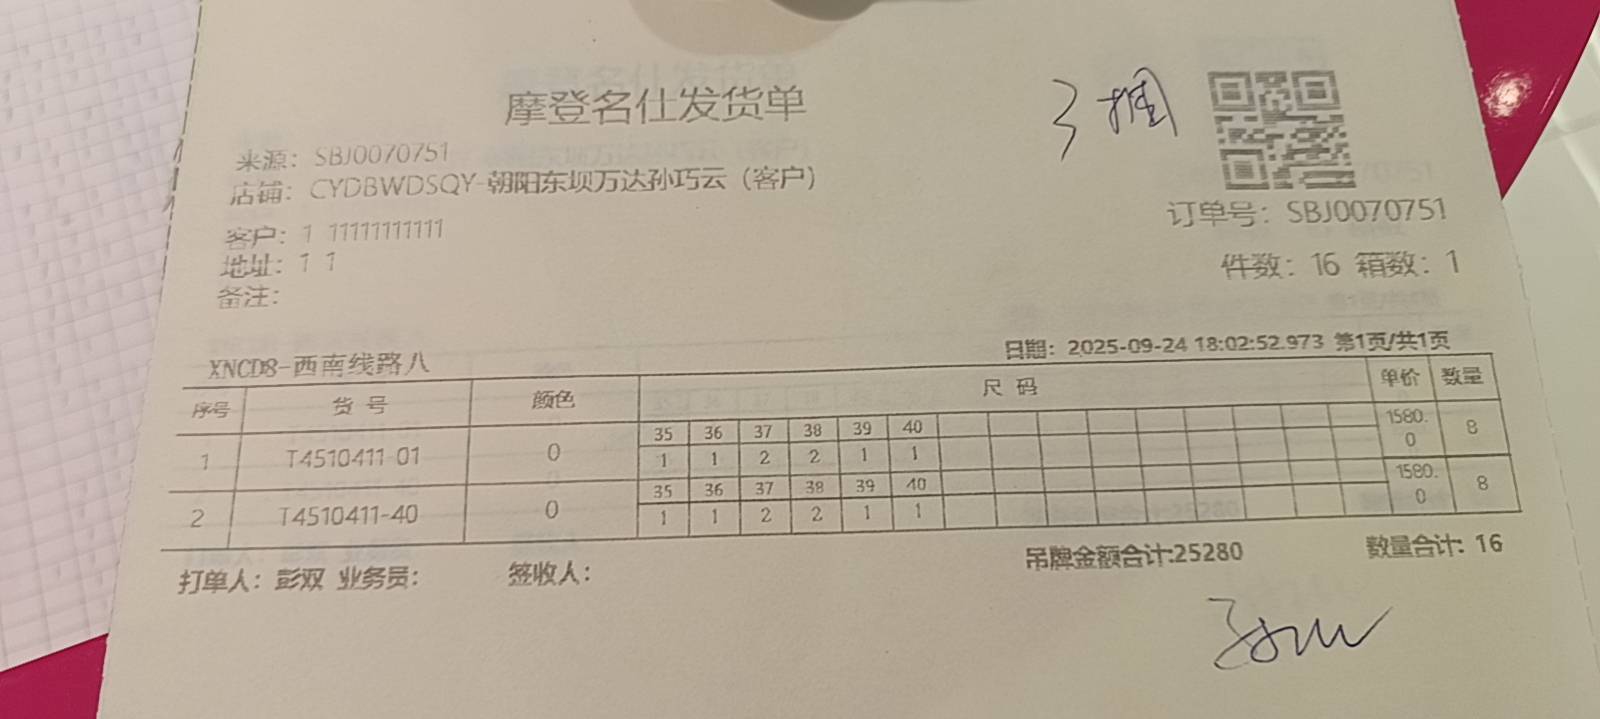 摩登名仕发货单
来源：SBJ0070751
店铺：CYDBWDSQY-朝阳东坝万达孙巧云（客户）
客户：1 11111111111
地址：1 1
备注：
订单号：SBJ0070751
件数：16 箱数：1
XNCD8-西南线路八
日期：2025-09-24 18:02:52.973 第1页/共1页
序号 货号 颜色 尺码 单价 数量
35 36 37 38 39 40
1 T4510411-01 0 1 1 2 2 1 1 1580.0 8
35 36 37 38 39 40
2 T4510411-40 0 1 1 2 2 1 1 1580.0 8
吊牌金额合计:25280 数量合计: 16
打单人：彭双 业务员： 签收人：